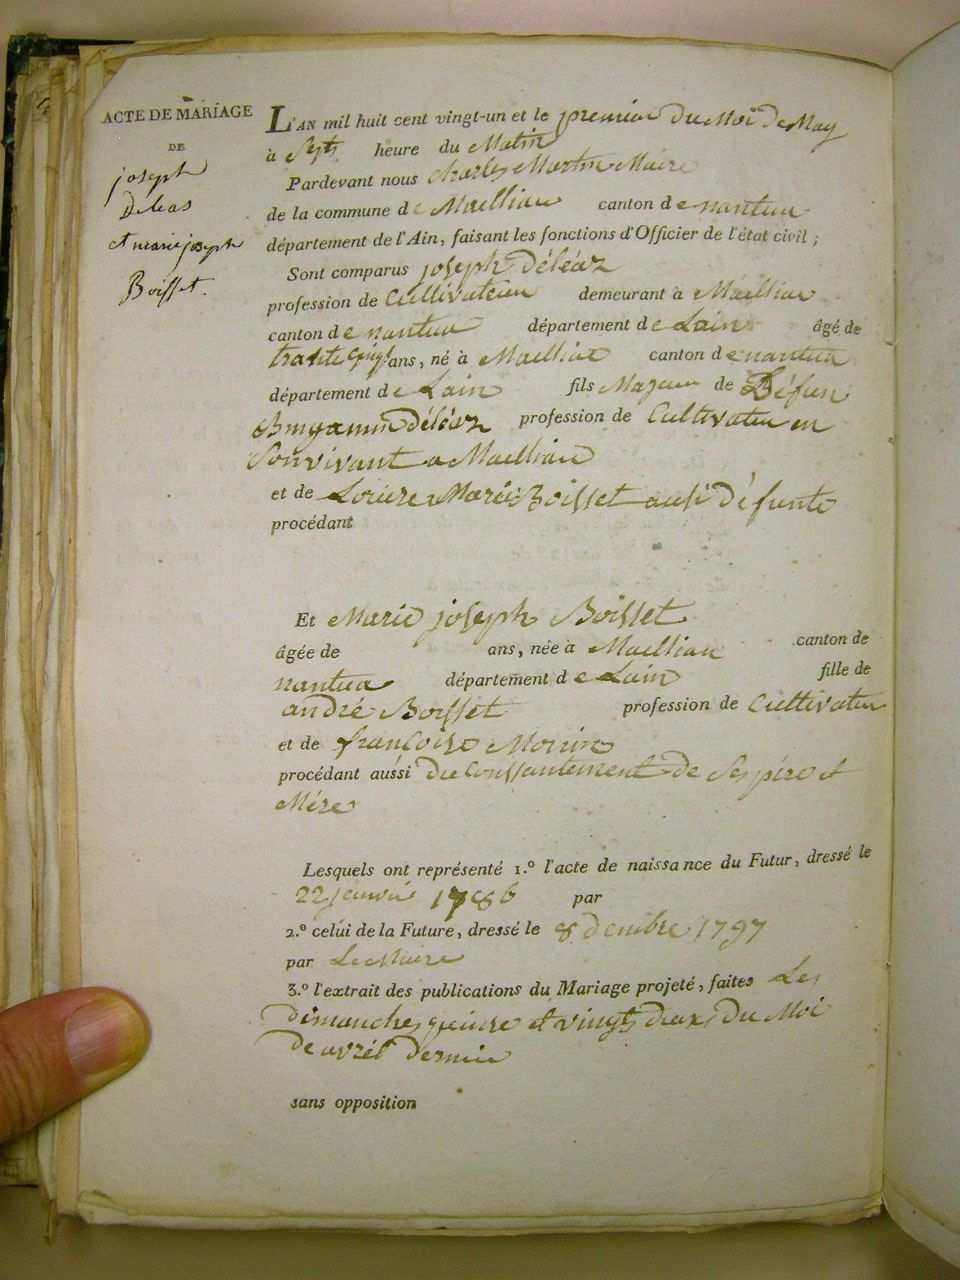 ACTE DE MARIAGE
DE
joseph
Deleas
et marie joseph
Boisset.
L'AN mil huit cent vingt-un et le premier du Moi de May
à Sept heure du Matin
Pardevant nous charles Martin Maire
de la commune de Maillia canton de nantua
département de l'Ain, faisant les fonctions d'Officier de l'état civil;
Sont comparus joseph Déléaz
profession de Cultivateur demeurant à Maillia
canton de nantua département de Lain âgé de
trante Cinq ans, né à Maillia canton de nantua
département de Lain fils Majeur de Défun
Déléaz profession de Cultivateur en
Son vivant a Maillia
et de Marie Boisset ausi Défunte
procédant
Et Marie joseph Boisset
âgée de ans, née à Maillia canton de
nantua département de Lain fille de
andré Boisset profession de Cultivateur
et de françoise Morin
procédant aussi du Consantement de Ses pére et
Mére
Lesquels ont représenté 1.º l'acte de naissance du Futur, dressé le
22 janvié 1786 par
2.º celui de la Future, dressé le 8 1797
par Le Maire
3.º l'extrait des publications du Mariage projeté, faites Les
Dimanches quinze et vingt deux du Moi
De avrél Dernié
sans opposition